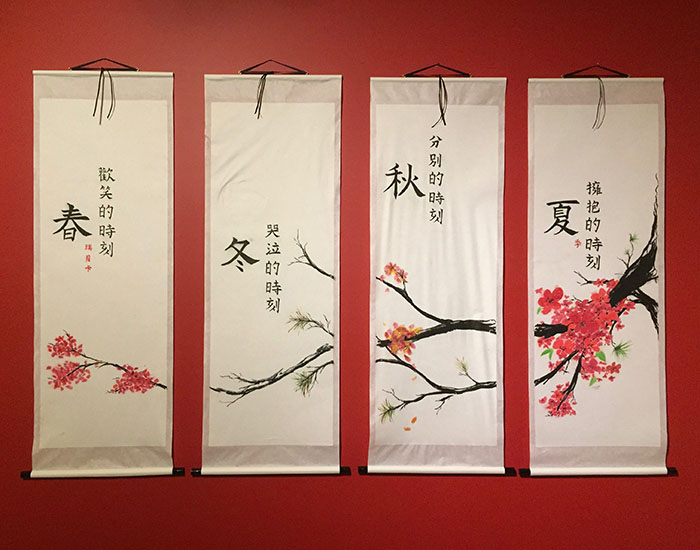 擁抱的時刻
夏
季
分別的時刻
秋
哭泣的時刻
冬
歡笑的時刻
春